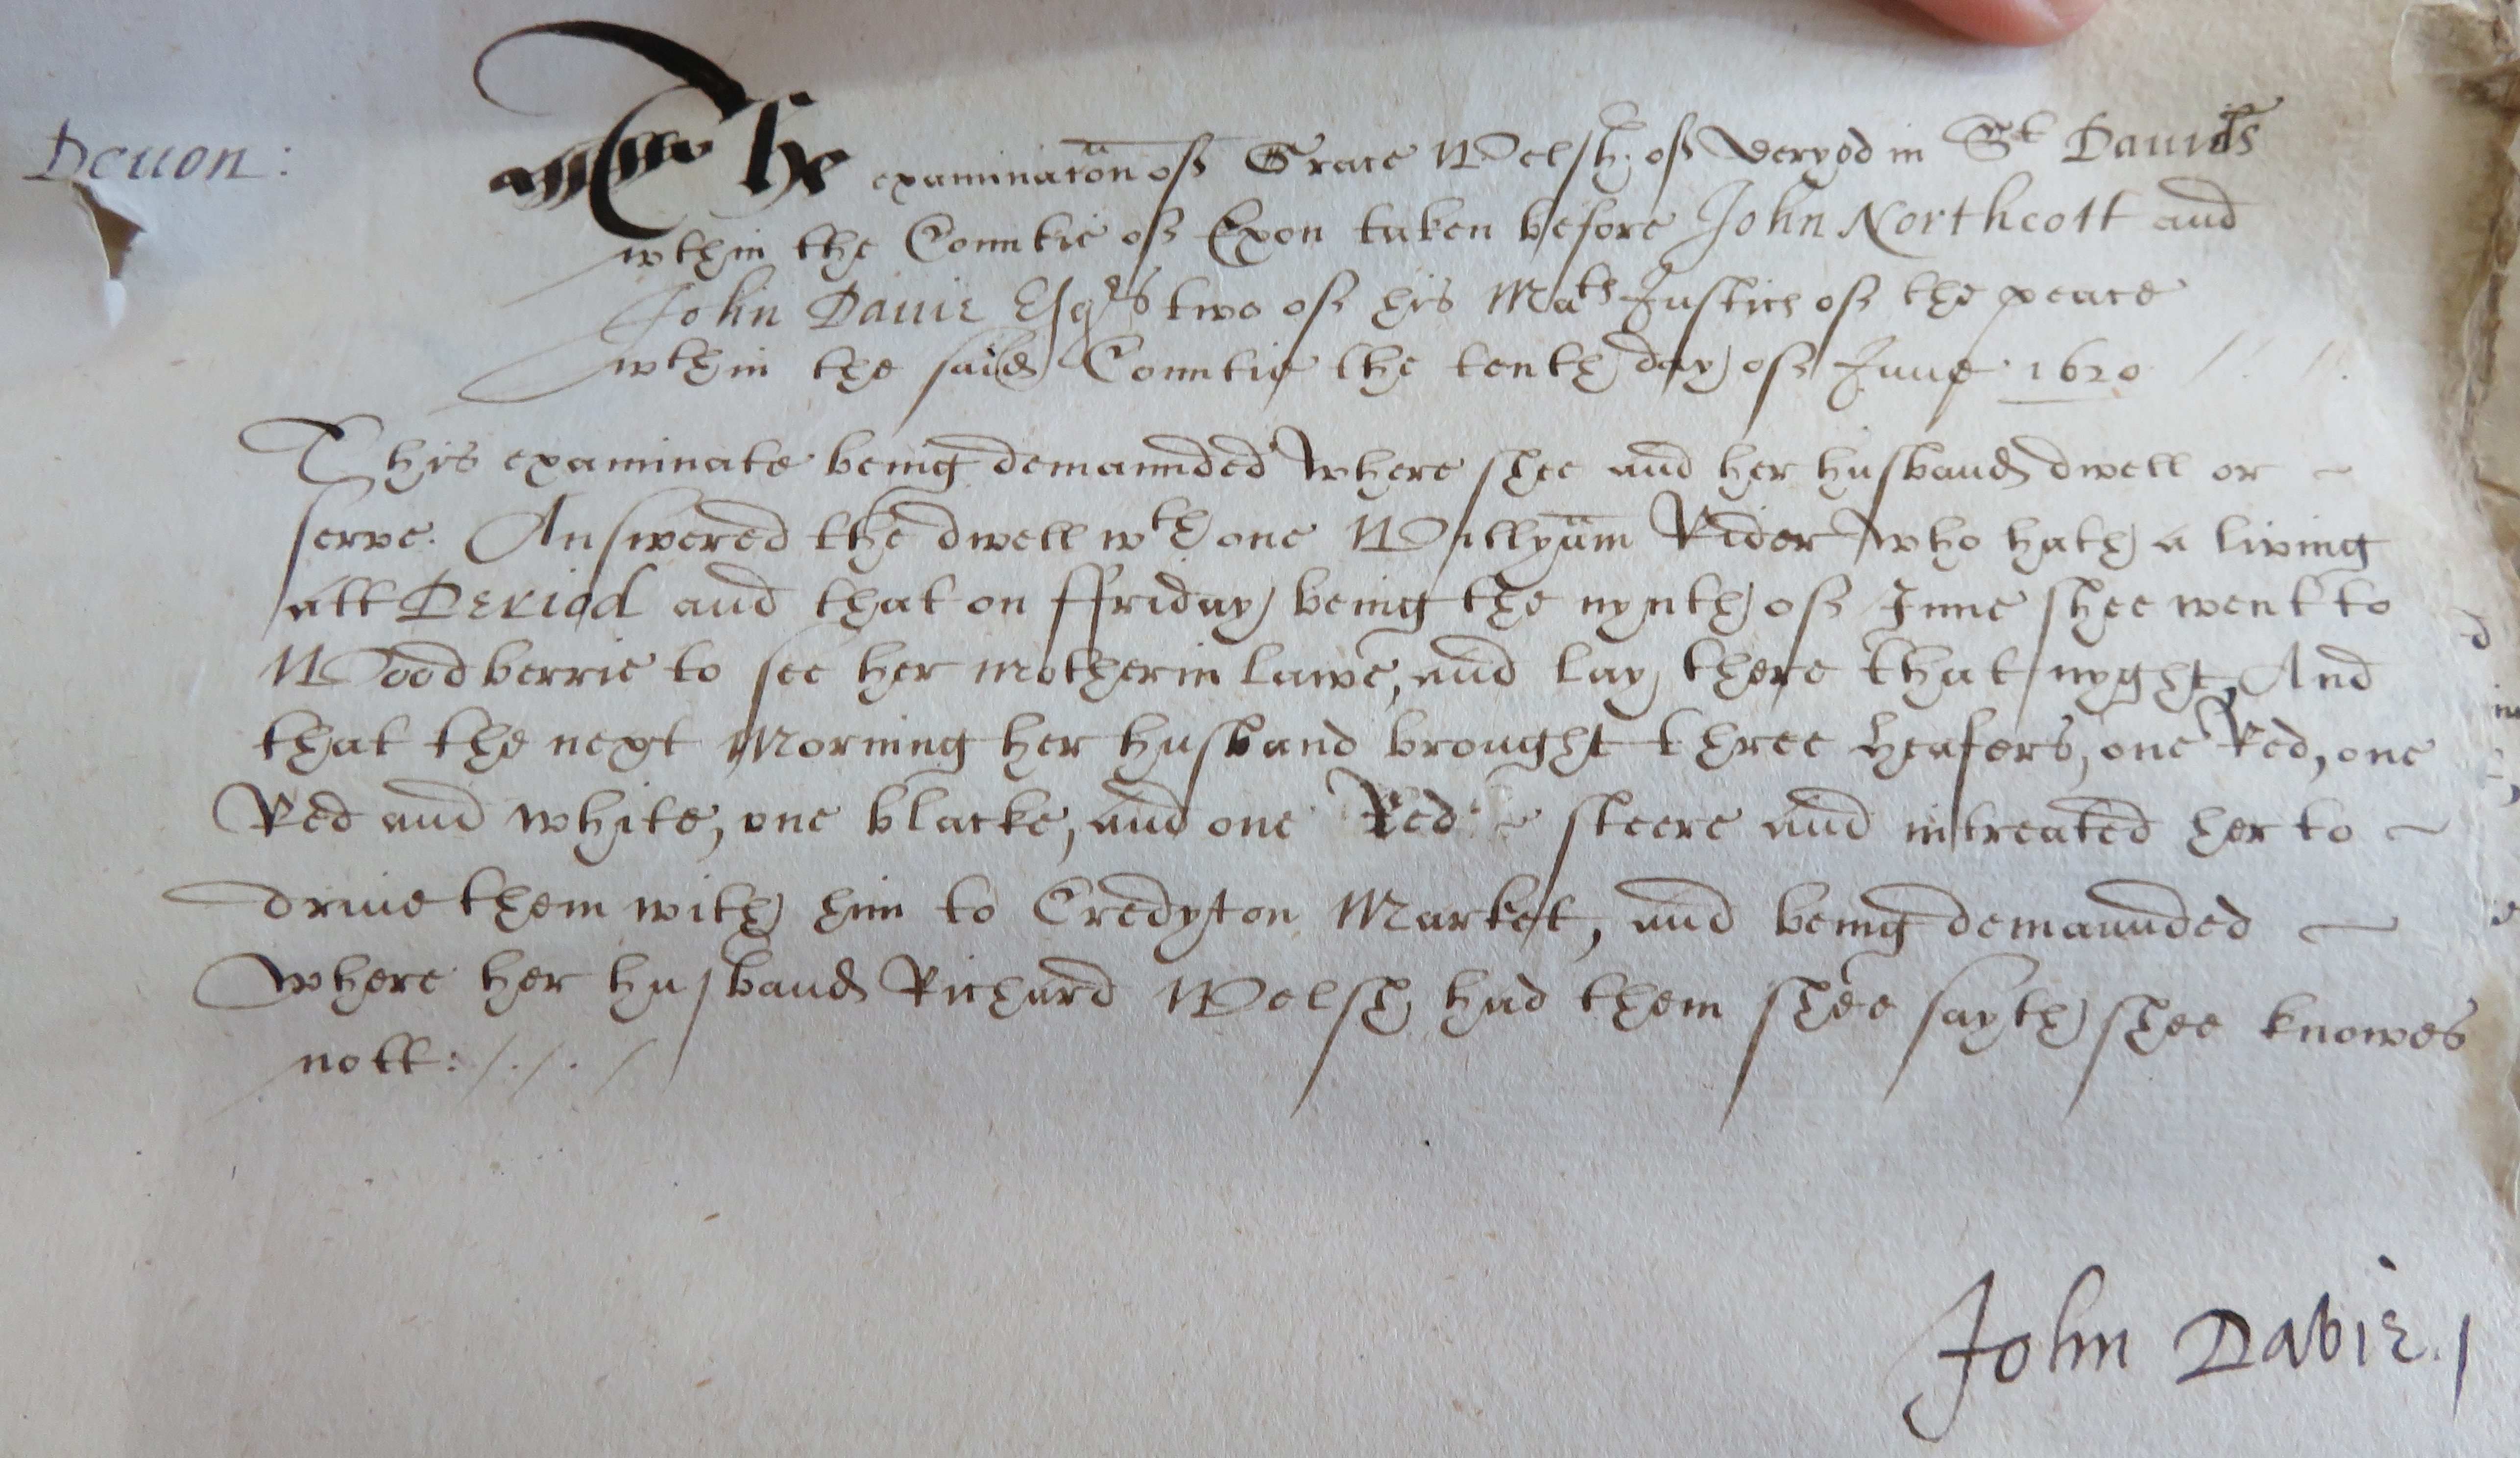 Deuon:
The examinacon of Grace Welsh of Deryod in St Dauids
wthin the Countie of Exon taken before John Northcott and
John Dauie Esqrs two of his Mats Justics of the peace
wthin the said Countie the tenth day of June 1620
This examinate being demaunded where shee and her husband dwell or
serve. Answered the dwell wth one Willyam Rider who hath a living
att Deriod and that on ffriday being the nynth of June shee went to
Woodberrie to see her mother in lawe, and lay there that nyght, And
that the next Morning her husband brought three heafers, one Red, one
Red and white, one blacke, and one Red steere and intreated her to
driue them with him to Credyton Market, and being demaunded
where her husband Richard Welsh had them shee sayth shee knowes
nott:
John Davie